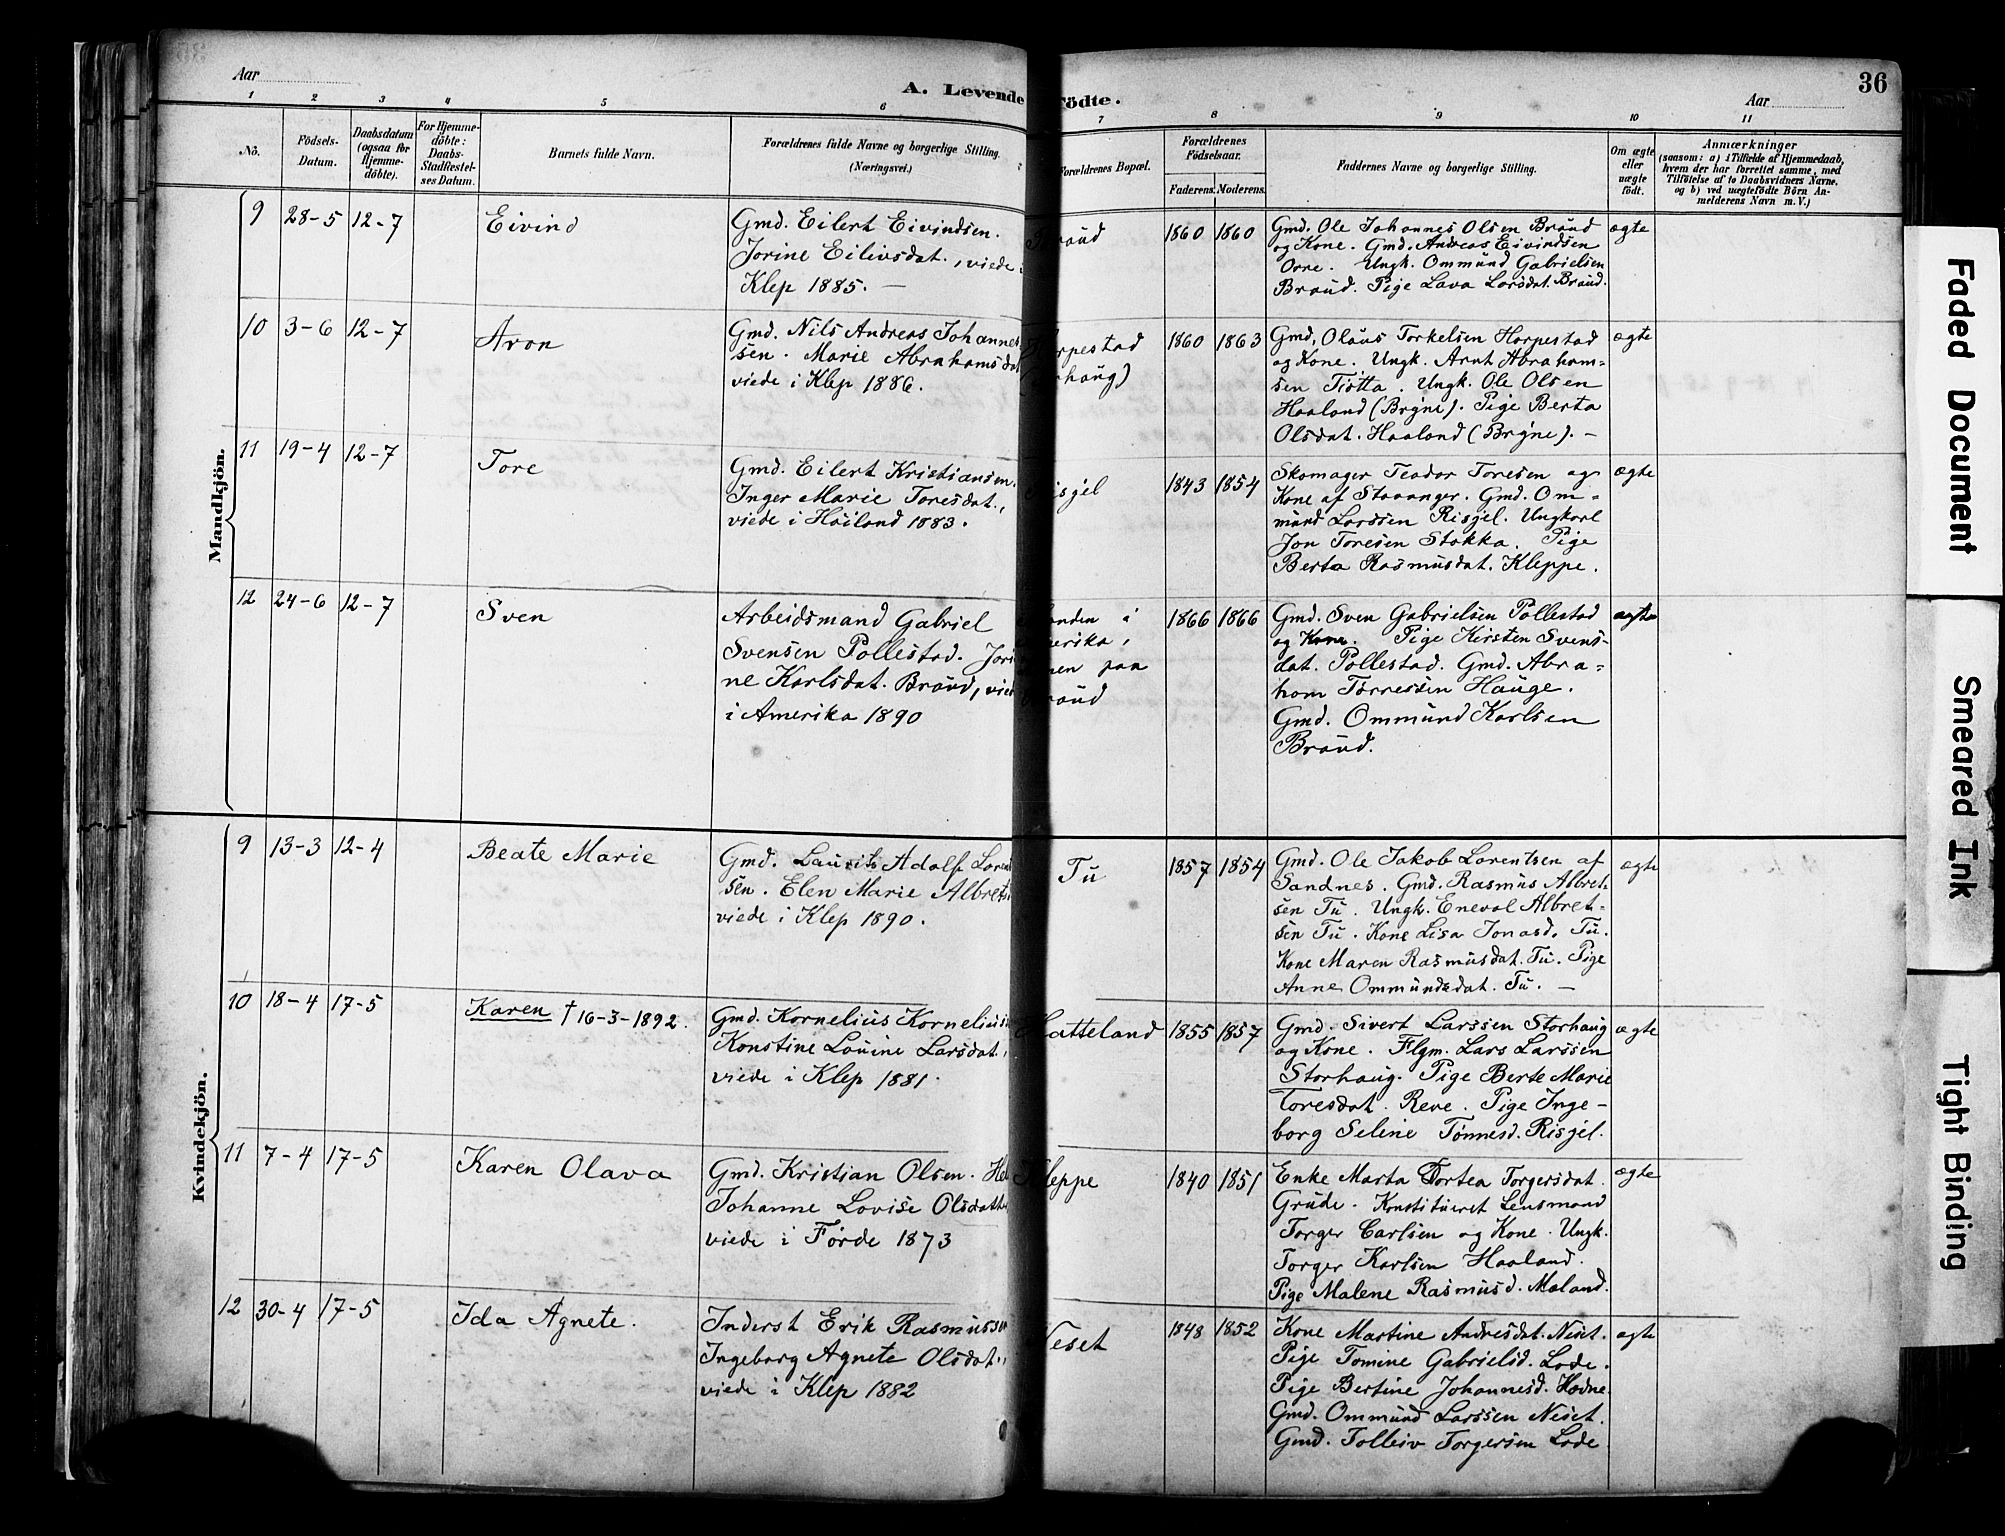 Aar
A. Levende Födte.
Aar
36
1 2 3 4 5 6 7 8 9 10 11
Nö.
Födsels-
Datum.
Daabsdatum
(ogsaa for
Hjemme-
döbte).
For Hjemme-
döbte:
Daabs-
Stadfæstel-
ses Datum.
Barnets fulde Navn.
Forældrenes fulde Navne og borgerlige Stilling.
(Næringsvei.)
Forældrenes Bopæl.
Forældrenes
Födselsaar.
Faderens. Moderens.
Faddernes Navne og borgerlige Stilling.
Om ægte
eller
uægte
födt.
Anmærkninger
(saasom: a) i Tilfælde af Hjemmedaab,
hvem der har forrettet samme, med
Tilföielse af to Daabsvidners Navne,
og b) ved uægtefödte Börn An-
melderens Navn m. V.)
Mandkjön.
9 28-5 12-7 Eivind
Gmd. Eilert Eivindsen.
Jorine Eilivsdat., viede i
Klep 1885. —
Braud
1860 1860
Gmd. Ole Johannes Olsen Braud
og Kone. Gmd. Andreas Eivindsen
Orre. Ungk. Ommund Gabrielsen
Braud. Pige Lava Larsdat. Braud.
ægte
10 3-6 12-7 Aron
Gmd. Nils Andreas Johannes
sen. Marie Abrahamsdat
viede i Klep 1886.
Horpestad
haug)
1860 1863
Gmd. Olaus Torkelsen Horpestad
og Kone. Ungk. Arnt Abraham=
sen Tjøtta. Ungk. Ole Olsen
Haaland (Bryne). Pige Berta
Olsdat. Haaland (Bryne). —
ægte
11 19-4 12-7 Tore
Gmd. Eilert Kristiansen.
Inger Marie Toresdat.,
viede i Høiland 1883.
Risjel
1843 1854
Skomager Teodor Toresen og
Kone af Stavanger. Gmd. Om=
mund Larssen Risjel. Ungkarl
Jon Toresen Stokka. Pige
Berta Rasmusdat. Kleppe.
ægte
12 24-6 12-7 Sven
Arbeidsmand Gabriel
Svensen Pollestad. Jori
ne Karlsdat. Braud, viede
i Amerika 1890
Manden i
Amerika,
Konen paa
Braud
1866 1866
Gmd. Sven Gabrielsen Pollestad
og Kone. Pige Kirsten Svens-
dat. Pollestad. Gmd. Abra=
ham Tørressen Hauge.
Gmd. Ommund Karlsen
Braud.
ægte
Kvindekjön.
9 13-3 12-4 Beate Marie
Gmd. Laurits Adolf Lorent
sen. Elen Marie Albrets
viede i Klep 1890.
Tu
1857 1854
Gmd. Ole Jakob Lorentsen af
Sandnes. Gmd. Rasmus Albret-
sen Tu. Ungk. Eneval Albret-
sen Tu. Kone Lisa Jonasd. Tu.
Kone Maren Rasmusdat. Tu. Pige
Anne Ommundsdat. Tu. —
ægte
10 18-4 17-5 Karen † 16-3-1892.
Gmd. Kornelius Kornelius
Konstine Lovine Larsdat.,
viede i Klep 1881.
Hatteland
1855 1857
Gmd. Sivert Larssen Storhaug
og Kone. Flgm. Lars Larssen
Storhaug. Pige Berte Marie
Toresdat. Reve. Pige Inge-
borg Seline Tønnesd. Risjel.
ægte
11 7-4 17-5 Karen Olava
Gmd. Kristian Olsen.
Johanne Lovise Olsdatter
viede i Førde 1873
Kleppe
1840 1851
Enke Marta Tortea Torgersdat.
Grude. Konstitueret Lensmand
Torger Carlsen og Kone. Ungk.
Torger Karlsen Haaland.
Pige Malene Rasmusd. Maland.
ægte
12 30-4 17-5 Ida Agnete.
Inderst Erik Rasmussen
Ingeborg Agnete Olsdat.,
viede i Klep 1882
Neset
1848 1852
Kone Martine Andresdat. Neset.
Pige Tomine Gabrielsd. Lode.
Pige Bertine Johannesd. Hodne.
Gmd. Ommund Larssen Neset.
Gmd. Tolleiv Torgersen Lode
ægte
Faded Document
Smeared Ink
Tight Binding